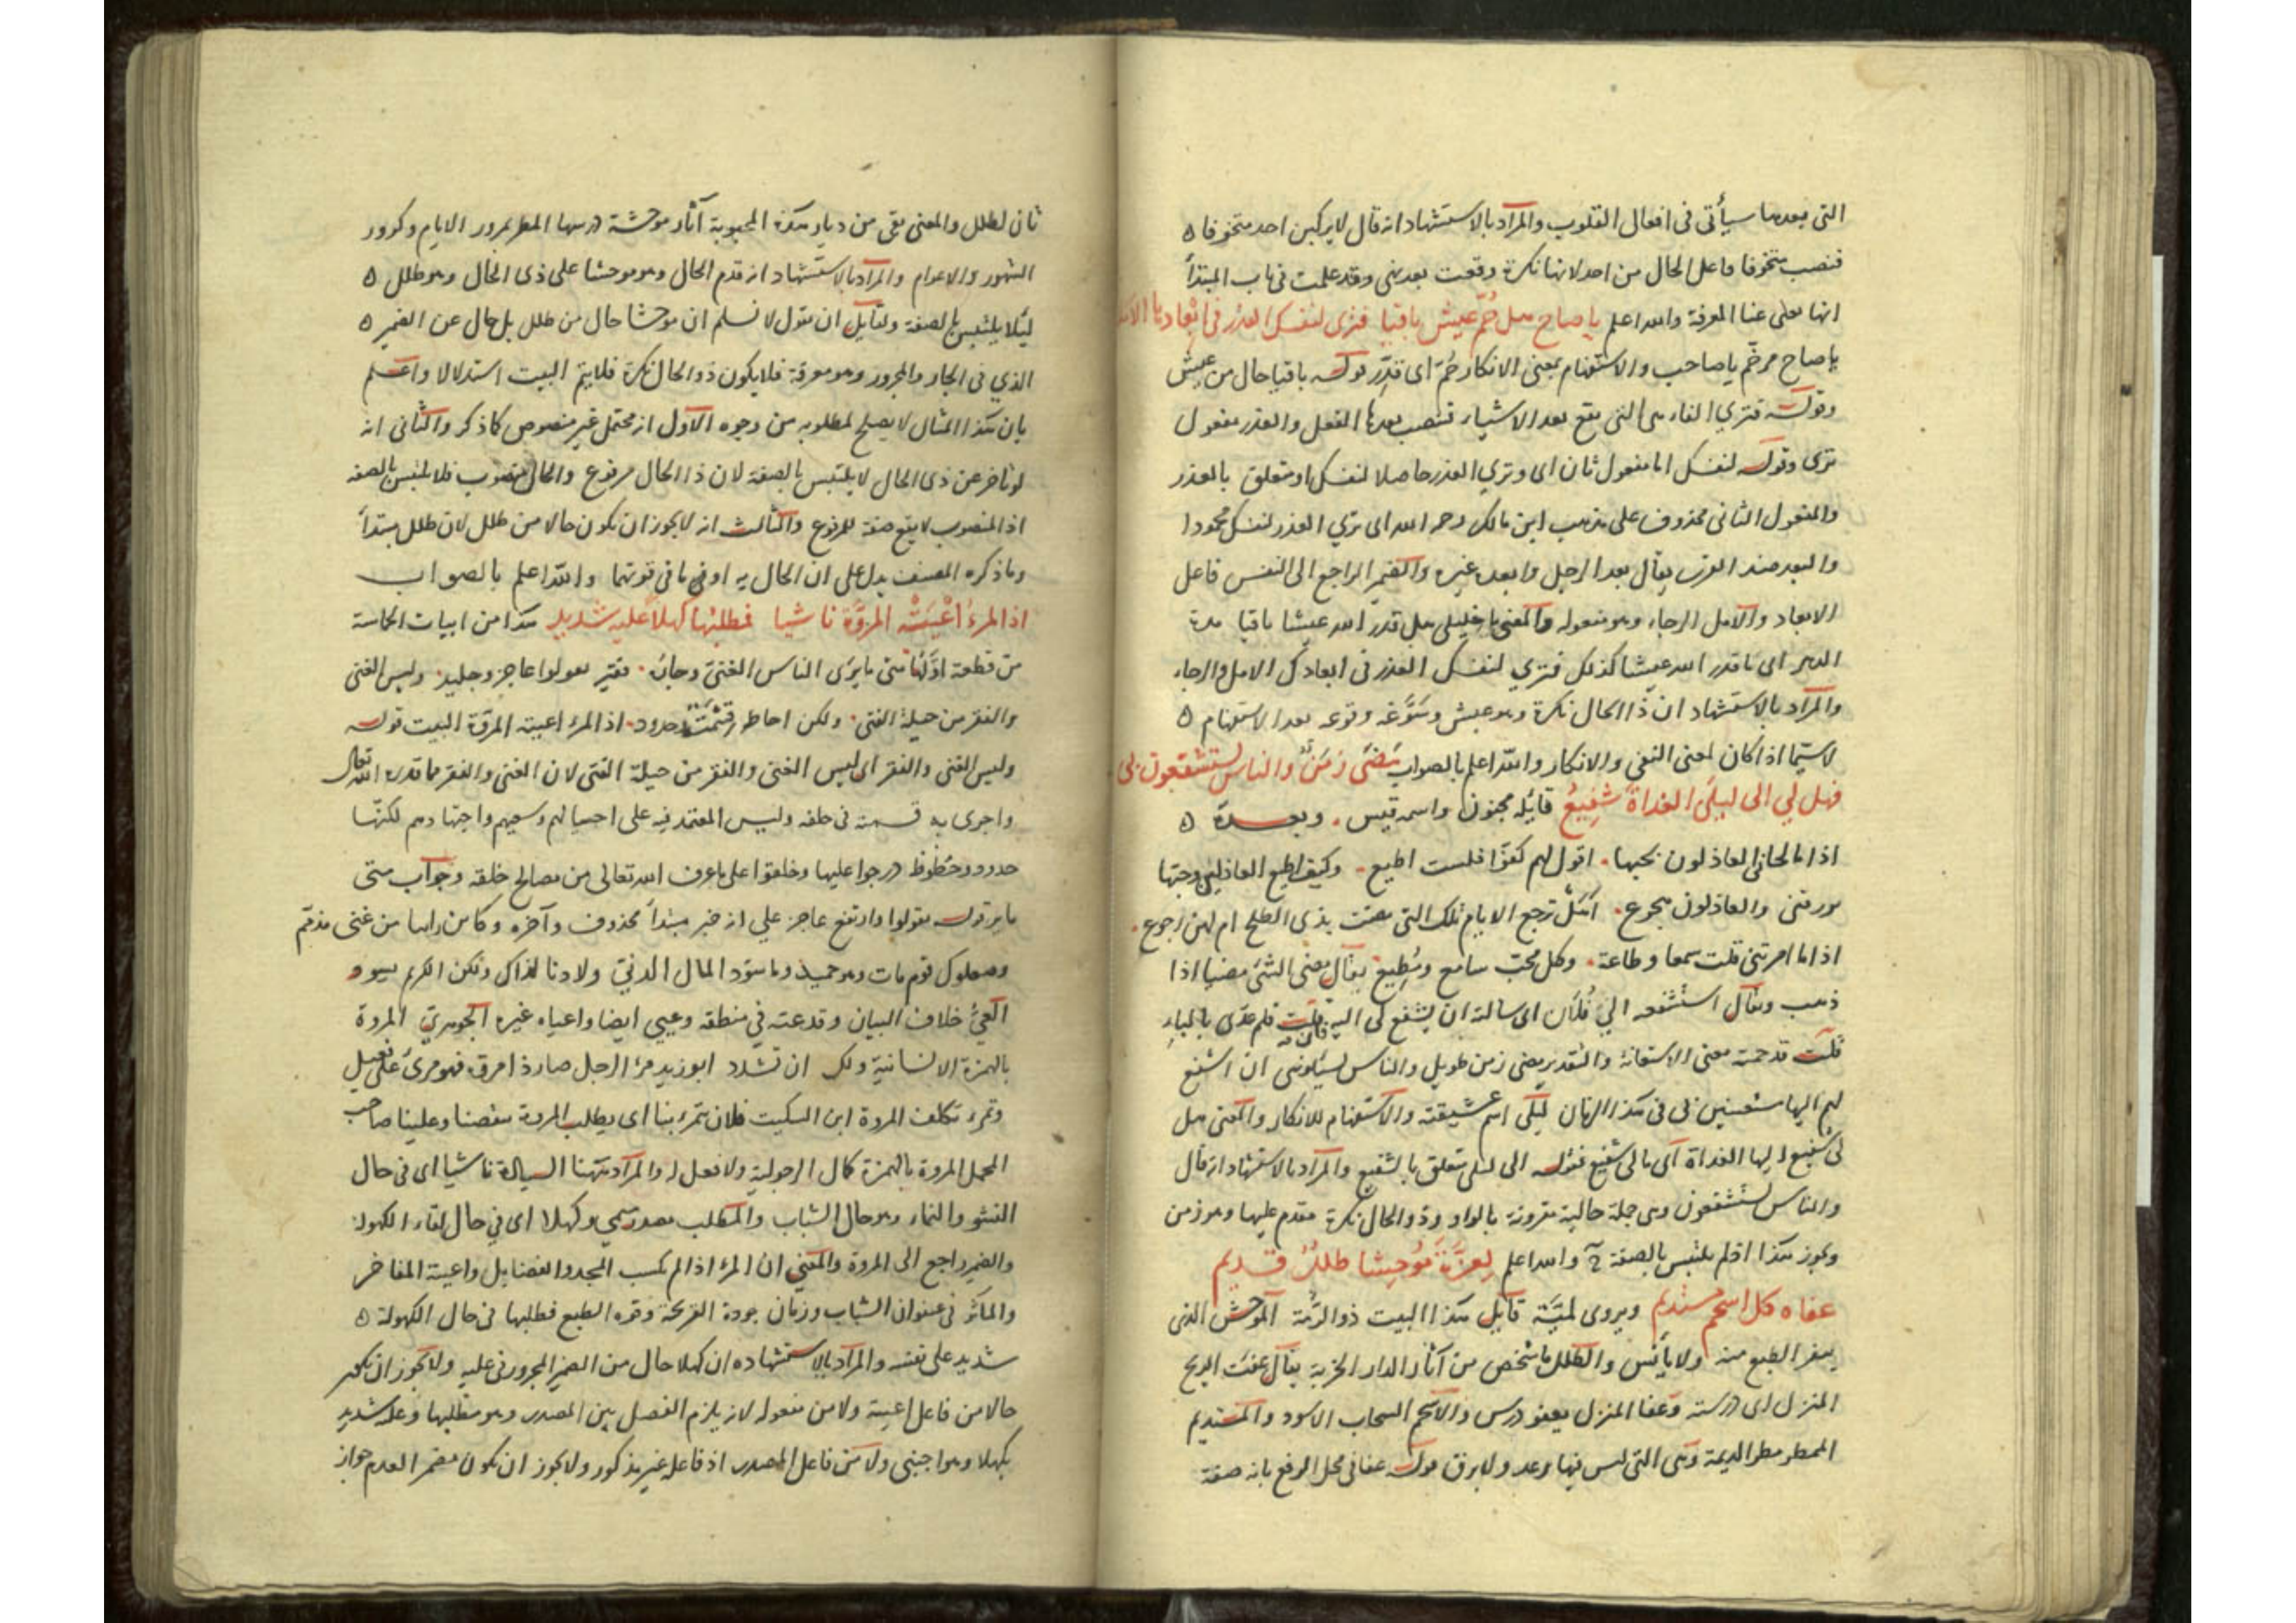 التى بعدها سيأتى فى افعال القلوب والمراد بالاستشهاد انه قال لا يركبن احد متخوفا ه
فنصب متخوفا على الحال من احد لانها نكرة وقعت بعد نهى وقد علمت فى باب المبتدأ
انها تعطى عنا المعرفة والله اعلم يا صاح هل حُمَّ عيش باقيا فترى لنفسك العذر فى ابعادها الاملا
يا صاح مرخّم يا صاحب والاستفهام بمعنى الانكار حُمّ اى قُدِّر قوله باقيا حال من عيش
وقوله فترى الفاء هى التى تقع بعد الاشياء فتنصب بعدها الفعل والعذر مفعول
ترى وقوله لنفسك اما مفعول ثان اى وترى العذر حاصلا لنفسك او متعلق بالعذر
والمفعول الثانى محذوف على مذهب ابن مالك رحمه الله اى ترى العذر لنفسك محمودا
والبعد ضد القرب يقال بعد الرجل وابعده غيره والضمير الراجع الى النفس فاعل
الابعاد والامل الرجاء وهو مفعوله والمعنى يا خليلى هل قدر الله عيشا باقيا مدة
الدهر اى ما قدر الله عيشا كذلك فترى لنفسك العذر فى ابعادك الامل والرجاء
والمراد بالاستشهاد ان ذا الحال نكرة وهو عيش وسَوَّغه وقوعه بعد الاستفهام ه
لا سيّما اذا كان لمعنى النفى والانكار والله اعلم بالصواب مَضَى زمنٌ والناس يستشفعون بى
فهل لى الى ليلَى الغداةَ شفيعُ قائله مجنون واسمه قيس . وبعده ه
اذا ما لحانى العاذلون بحبها . اقول لهم كفوا فلست اطيع . وكيف اطيع العاذلين وحبها
يورقنى والعاذلون هجوع . ترجع الايام تلك التى مضت بذى الطلح ام لهن رجوع .
اذا ما امرتنى قلت سمعا وطاعة . وكل محبّ سامع ومُطيع يقال مضى الشئ مضيا اذا
ذهب ويقال استشفعه الىَ فُلان اى سأله ان يشفع لى اليه فان قلت فلم عدّى بالباء
قلت قد ضمنه معنى الاستعانة والتقدير مضى زمن طويل والناس يسألوننى ان اشفع
لهم اليها مستعينين بى فى هذا الزمان ليلى اسم عشيقته والاستفهام للانكار والمعنى هل
لى شفيع اليها الغداة اى مالى شفيع فقوله الى ليلى متعلق بالشفيع والمراد بالاستشهاد انه قال
والناس يستشفعون وهى جملة حالية مقرونة بالواو وذو الحال نكرة مقدم عليها وهو زمن
ويجوز هكذا اذ لم يلتبس بالصفة والله اعلم لِعزَّةَ مُوحِشا طللٌ قديم
عفاه كل اسحم مستديم ويروى لميَّة قائل هذا البيت ذو الرُّمة الموحش الذى
ينفر الطبع منه ولا يأنس والطلل ما شخص من آثار الدار الخربة يقال عفت الريح
المنزل اى درسته وعفا المنزل يعفو درس والاسحم السحاب الاسود والمستديم
الممطر مطر الديمة وهى التى ليس فيها رعد ولا برق قوله عفا فى محل الرفع بانه صفة
ثان لطلل والمعنى بقى من ديار هذه المحبوبة آثار موحشة درسها المطر بمرور الايام وكرور
الشهور والاعوام والمراد بالاستشهاد انه قدم الحال وهو موحشا على ذى الحال وهو طلل ه
ليلا يلتبس بالصفة ولقايل ان يقول لا نسلم ان موحشا حال من طلل بل حال عن الضمير ه
الذي فى الجار والمجرور وهو معرفة فلا يكون ذو الحال نكرة فلا يتم البيت استدلالا واعلم
بان هذا المثال لا يصلح لمطلوبه من وجوه الاول انه محتمل غير منصوص كما ذكر والثانى انه
لو تاخر عن ذى الحال لا يلتبس بالصفة لان ذا الحال مرفوع والحال منصوب فلا يلتبس بالصفه
اذ المنصوب لا يقع صفة للمرفوع والثالث انه لا يجوز ان يكون حالا من طلل لان طلل مبتدأ
وما ذكره المصنف يدل على ان الحال به اوفى ما فى قوتهما والله اعلم بالصواب
اذا المرءُ اعْيَتْه المروَّة ناشيا فمطلبها كهلا عليه شديد هذا من ابيات الحماسة
من قطعة اوَّلُها متى ما يرَى الناس الغنىّ وجارُه . فقير يقولوا عاجز وجليد . وليس الغنى
والفقر من حيلة الفتى . ولكن احاظٍ قُسّمَتْ وجدود . اذا المرء اعيته المروّة البيت قوله
وليس الغنى والفقر اى ليس الغنى والفقر من حيلة الفتى لان الغنى والفقر مما قدره الله تعالى
واجرى به قسمته فى خلقه وليس المعتمد فيه على احتيالهم وسعيهم واجتهادهم لكنّها
جدود وحظوظ درجوا عليها وخلقوا على ما عرف الله تعالى من مصالح خلقه وجواب متى
ما ير قوله يقولوا وارتفع عاجز على انه خبر مبتدأ محذوف وآخره وكاين رأينا من غنى مذمّم
وصعلوك قوم مات وهو حميد وما سوّد المال الدنىّ ولا دنا لذاك ولكن الكريم يسود
العىُّ خلاف البيان وقد عىّ فى منطقه وعيى ايضا واعياه غيره الجوهرى المروة
بالهمزة الانسانية ولك ان تشدد ابو زيد مرؤ الرجل صار ذا مروة فهو مرئ على فعيل
وتمرء تكلف المروة ابن السكيت فلان يتمرء بنا اى يطلب المروة بنقصنا وعيبنا صاحب
المجمل المروة بالهمزة كمال الرجولية ولا فعل له والمراد ههنا السيادة ناشيا اى فى حال
النشو والنماء وهو حال الشباب والمطلب مصدر ميمى وكهلا اى فى حال لقاء الكهولة
والضمير راجع الى المروة والمعنى ان المرء اذا لم يكسب المجد والفضايل واعيته المفاخر
والمآثر فى عنوان الشباب وزمان جودة القريحة وقوه الطبع فطلبها فى حال الكهولة ه
شديد على نفسه والمراد بالاستشهاد ه ان كهلا حال من الضمير المجرور فى عليه ولا يجوز ان يكون
حالا من فاعل اعيته ولا من مفعوله لانه يلزم الفصل بين المصدر وهو مطلبها وعليه شديد
بكهلا وهو اجنبى ولا من فاعل المصدر اذ فاعله غير مذكور ولا يجوز ان يكون مضمر العدم جواز